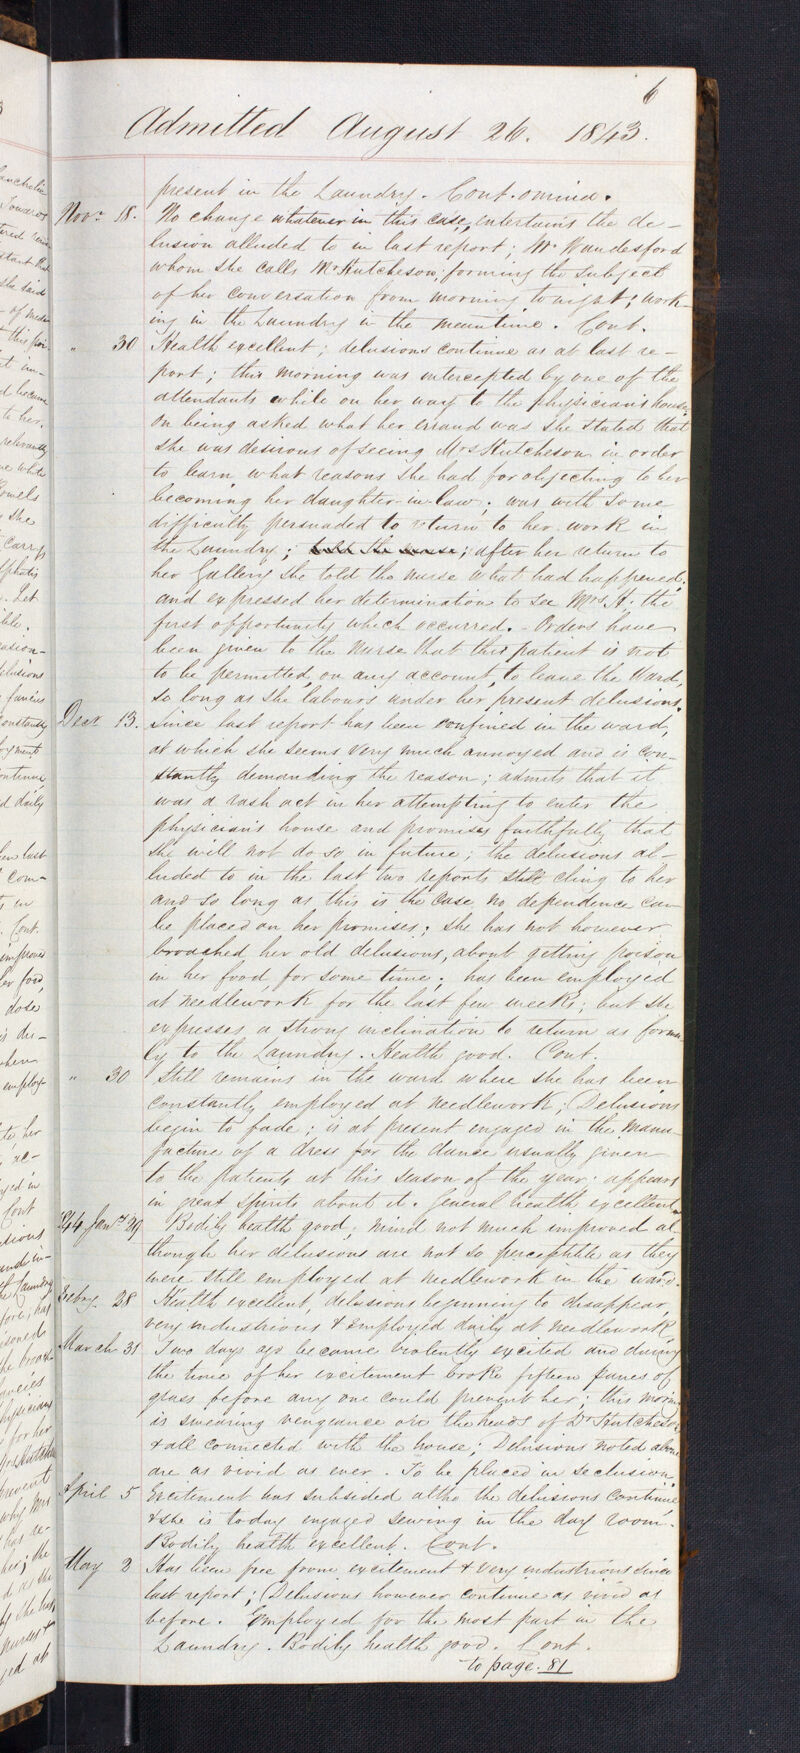 6
Admitted August 26. 1843.
present in the Laundry. Cont. omnia.
Novr. 18. No change whatever in this case, entertains the de-
lusion alluded to in last report; Mr. Wandesford
whom she calls Mr Hutcheson; forming the subject
of her conversation from morning to night; work-
ing in the Laundry in the meantime. Cont.
" 30 Health excellent; delusions continue as at last re-
port; this morning was intercepted by one of the
attendants while on her way to the physician's house.
On being asked what her errand was she stated that
she was desirous of seeing Mrs Hutcheson in order
to learn what reasons she had for objecting to her
becoming her daughter-in-law; was with some
difficulty persuaded to return to her work in
the Laundry; told the nurse; after her return to
her Gallery she told the nurse what had happened,
and expressed her determination to see Mrs. H. the
first opportunity which occurred. - Orders have
been given to the Nurse that this patient is not
to be permitted, on any account, to leave the Ward,
so long as she labours under her present delusions.
Decr. 13. Since last report has been confined in the ward,
at which she seems very much annoyed and is con-
stantly demanding the reason; admits that it
was a rash act in her attempting to enter the
physician's house and promises faithfully that
she will not do so in future; the delusions al-
luded to in the last two reports still cling to her
and so long as this is the case no dependence can
be placed on her promises; she has not however
broached her old delusions, about getting poison
in her food, for some time; has been employed
at needlework for the last few weeks; but she
expresses a strong inclination to return as former-
ly to the Laundry. Health good. Cont.
" 30 Still remains in the ward where she has been
constantly employed at needlework; Delusions
begin to fade; is at present engaged in the manu-
facture of a dress for the dance usually given
to the patients at this season of the year; appears
in great spirits about it. General health excellent.
1844 Jany. 29 Bodily health good; mind not much improved al-
though her delusions are not so perceptible as they
were still employed at needlework in the ward.
Feby. 28 Health excellent, delusions beginning to disappear,
very industrious & employed daily at needlework.
March 31 Two days ago became violently excited and during
the time of her excitement broke fifteen panes of
glass before any one could prevent her; this morning
is swearing vengeance on the heads of Dr Hutcheson
& all connected with the house; Delusions noted above
are as vivid as ever. To be placed in seclusion.
April 5 Excitement has subsided altho the delusions continue
& she is today engaged sewing in the day room.
Bodily health excellent. Cont.
May 2 Has been free from excitement & very industrious since
last report; Delusions however continue as vivid as
before. Employed for the most part in the
Laundry. Bodily health good. Cont.
to page. 81